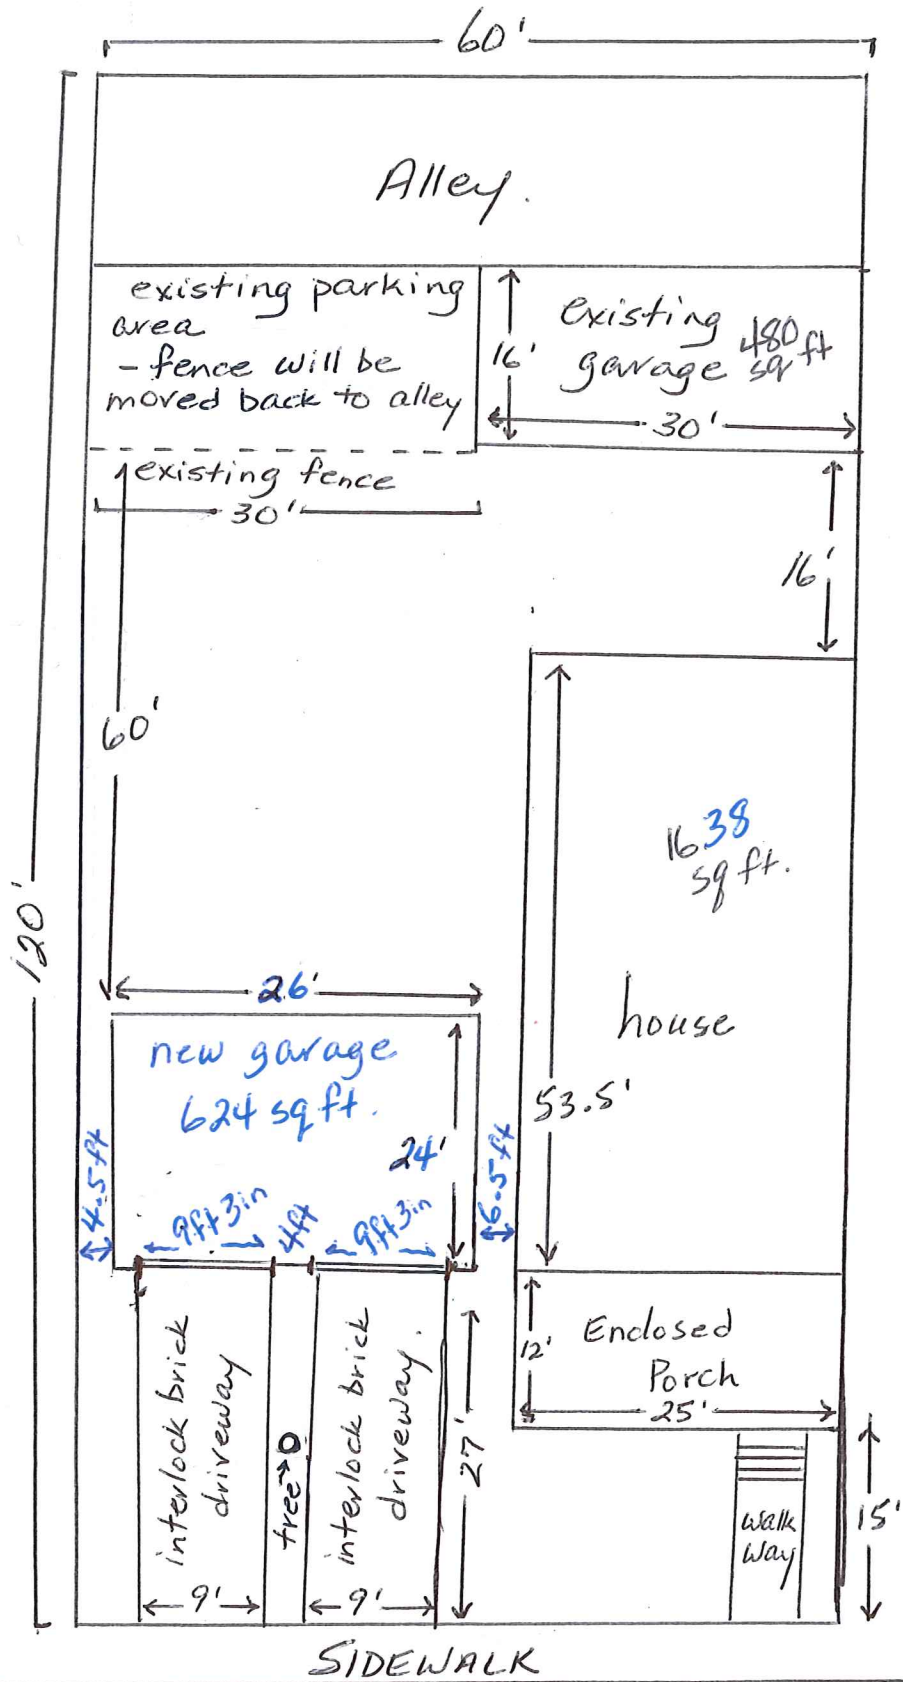 60'
Alley.
120'
existing parking
area
- fence will be
moved back to alley
16'
existing
garage
480
sq ft
30'
existing fence
30'
16'
60'
1638
sq ft.
house
53.5'
26'
new garage
624 sq ft.
24'
4.5 ft
6.5 ft
9ft 3in
4ft
9ft 3in
Enclosed
Porch
12'
25'
interlock brick
driveway
tree
interlock brick
driveway.
27'
walk
way
15'
9'
9'
SIDEWALK